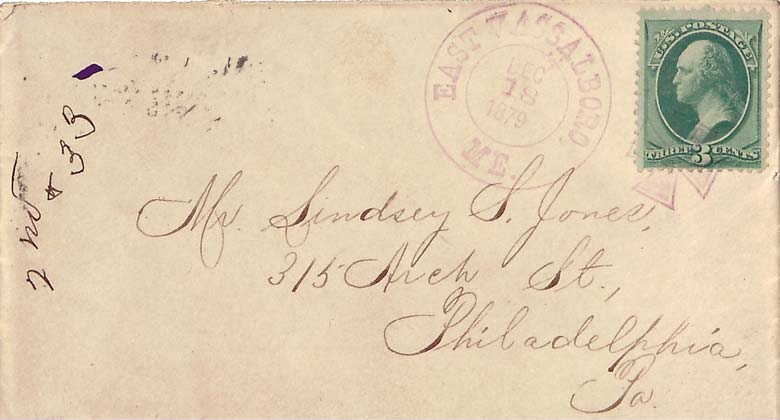 EAST VASSALBORO,
DEC
1879
ME.
U.S. POSTAGE
THREE 3 CENTS
Mr. Lindsey S. Jones,
315 Arch St.,
Philadelphia,
Pa.
33